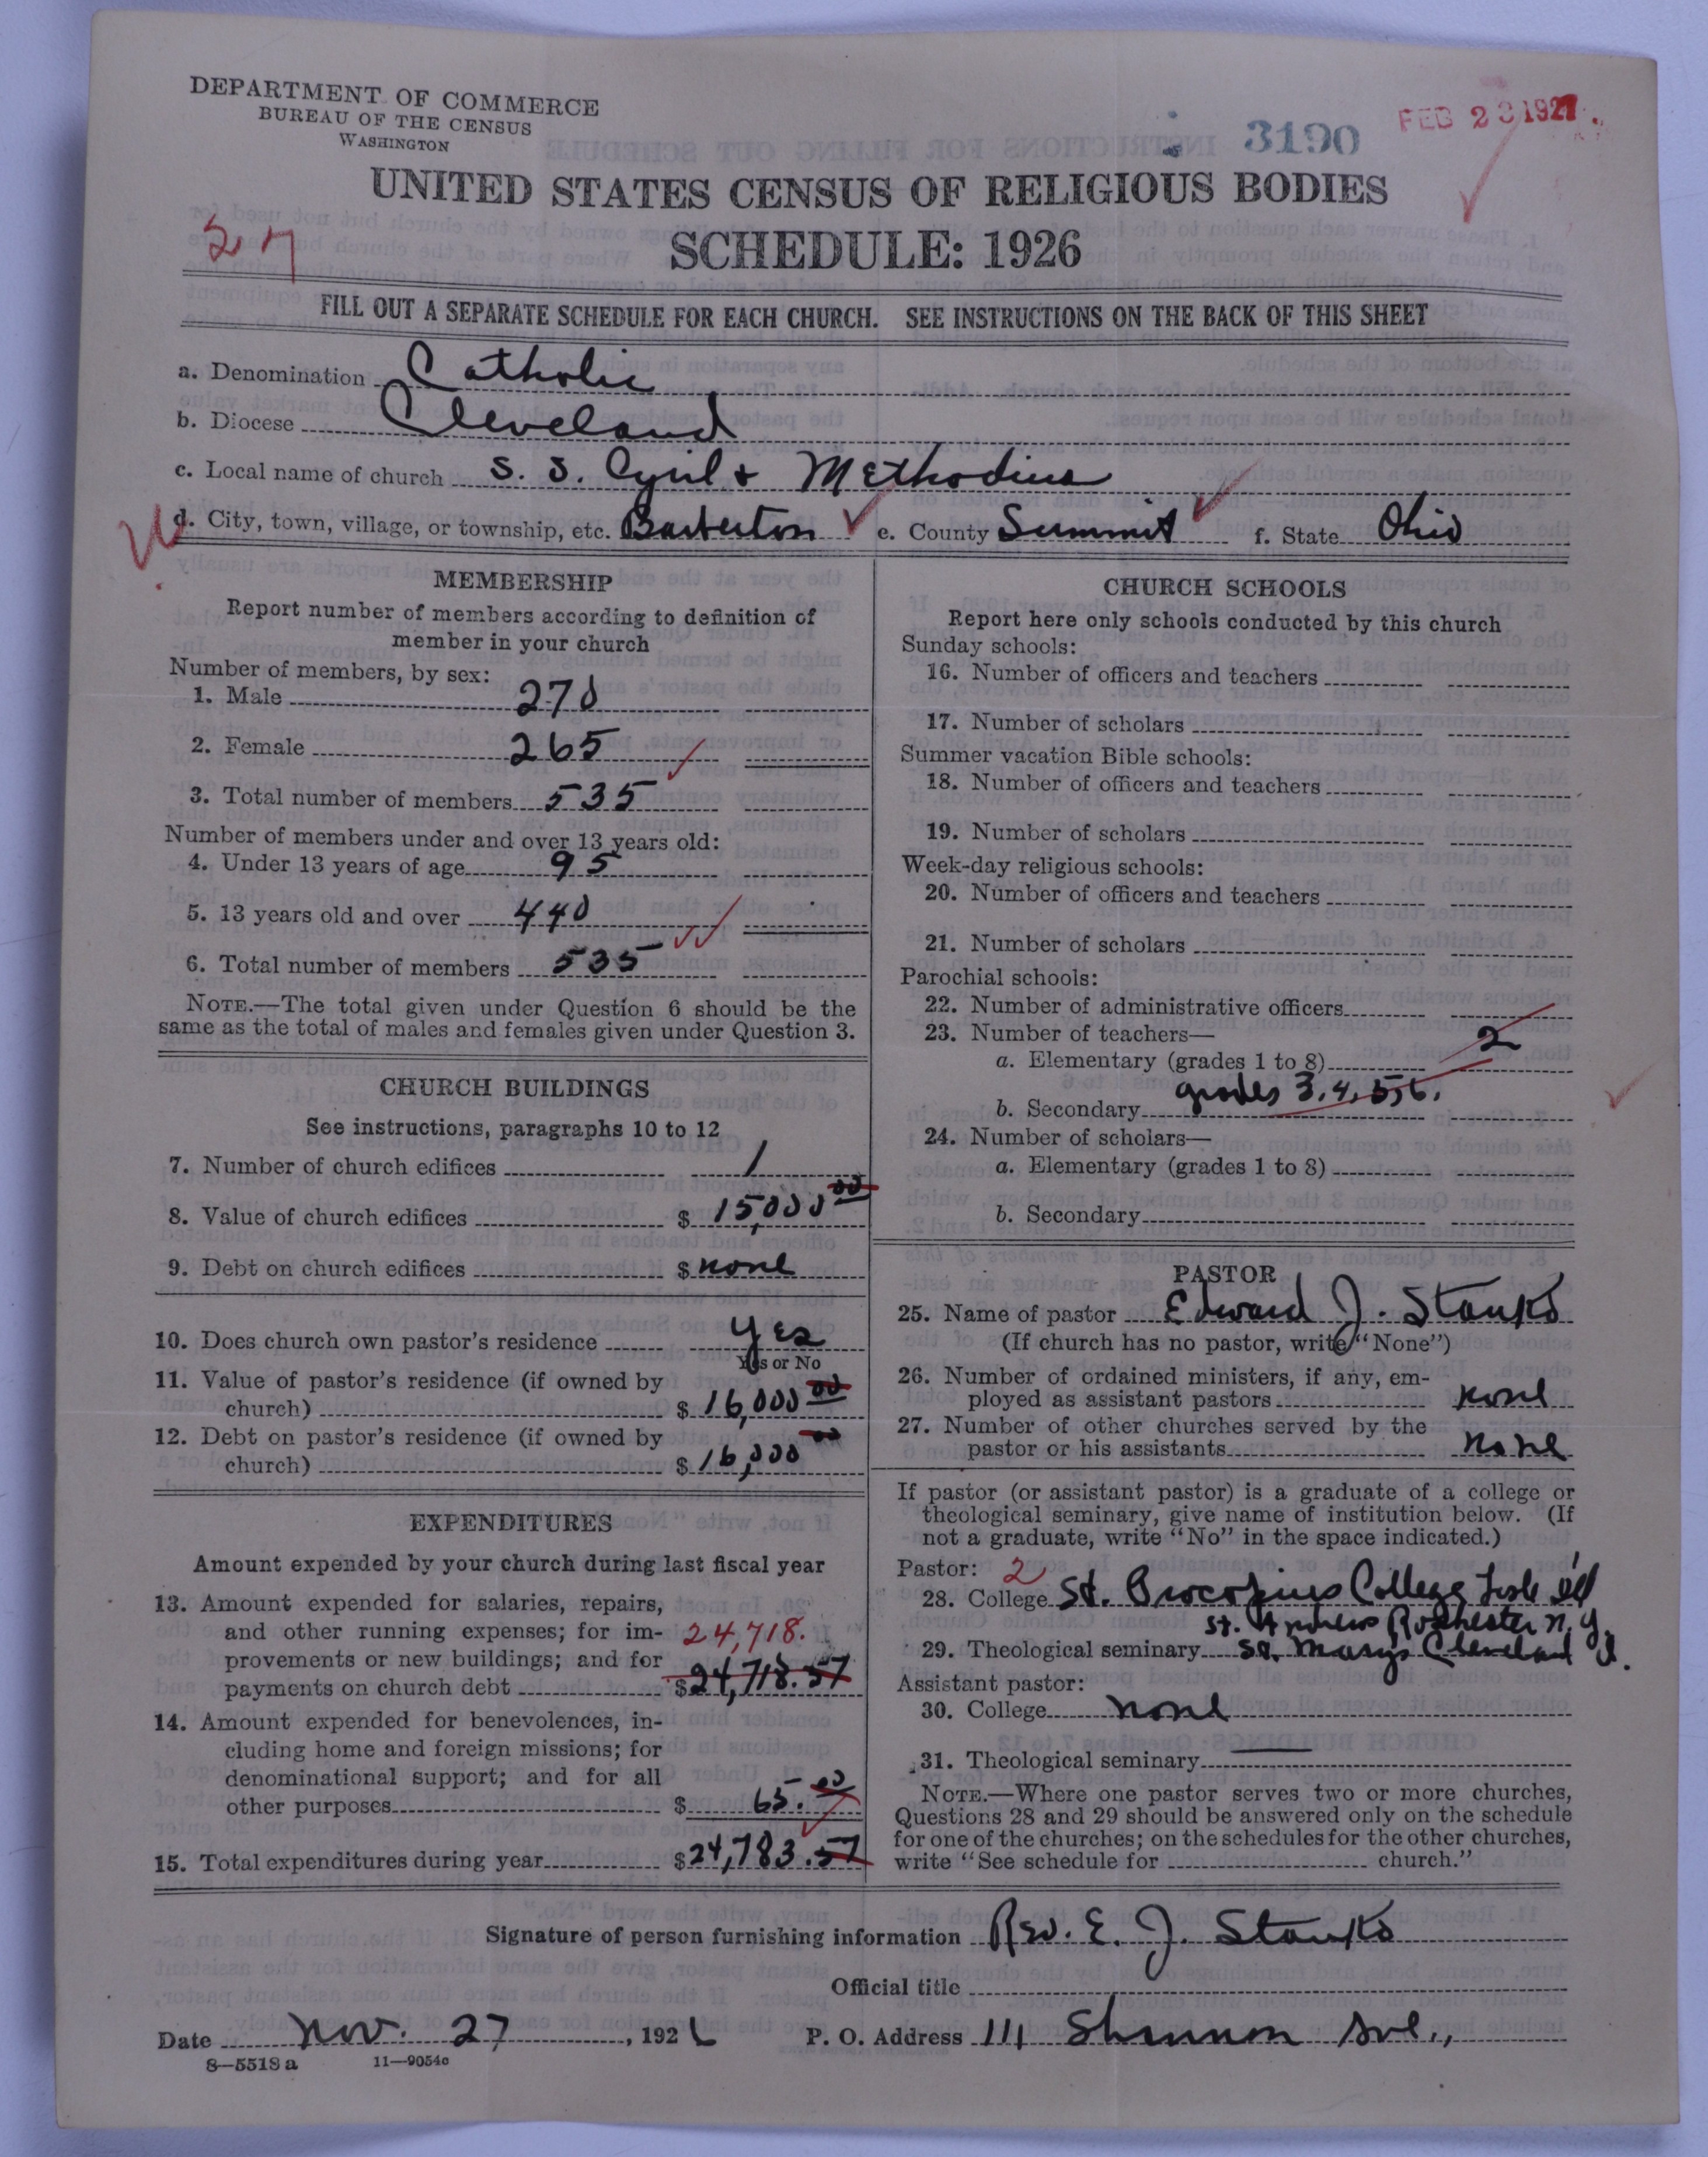 DEPARTMENT OF COMMERCE
BUREAU OF THE CENSUS
WASHINGTON
3190
FEB 23 1927
UNITED STATES CENSUS OF RELIGIOUS BODIES
SCHEDULE: 1926
FILL OUT A SEPARATE SCHEDULE FOR EACH CHURCH. SEE INSTRUCTIONS ON THE BACK OF THIS SHEET
a. Denomination Catholic
b. Diocese Cleveland
c. Local name of church S. S. Cyril + Methodius
d. City, town, village, or township, etc. Barberton e. County Summit f. State Ohio
MEMBERSHIP
Report number of members according to definition of
member in your church
Number of members, by sex:
1. Male 270
2. Female 265
3. Total number of members 535
Number of members under and over 13 years old:
4. Under 13 years of age 95
5. 13 years old and over 440
6. Total number of members 535
NOTE.—The total given under Question 6 should be the
same as the total of males and females given under Question 3.
CHURCH BUILDINGS
See instructions, paragraphs 10 to 12
7. Number of church edifices 1
8. Value of church edifices $ 15,000 00
9. Debt on church edifices $ none
10. Does church own pastor's residence yes
Yes or No
11. Value of pastor's residence (if owned by
church) $ 16,000 00
12. Debt on pastor's residence (if owned by
church) $ 16,000 00
EXPENDITURES
Amount expended by your church during last fiscal year
13. Amount expended for salaries, repairs,
and other running expenses; for im- 24,718.
provements or new buildings; and for
payments on church debt $24,718.57
14. Amount expended for benevolences, in-
cluding home and foreign missions; for
denominational support; and for all
other purposes $ 65.00
15. Total expenditures during year $24,783.57
CHURCH SCHOOLS
Report here only schools conducted by this church
Sunday schools:
16. Number of officers and teachers
17. Number of scholars
Summer vacation Bible schools:
18. Number of officers and teachers
19. Number of scholars
Week-day religious schools:
20. Number of officers and teachers
21. Number of scholars
Parochial schools:
22. Number of administrative officers
23. Number of teachers—
a. Elementary (grades 1 to 8) 2
grades 3, 4, 5, 6.
b. Secondary
24. Number of scholars—
a. Elementary (grades 1 to 8)
b. Secondary
PASTOR
25. Name of pastor Edward J. Stanko
(If church has no pastor, write "None")
26. Number of ordained ministers, if any, em-
ployed as assistant pastors none
27. Number of other churches served by the
pastor or his assistants none
If pastor (or assistant pastor) is a graduate of a college or
theological seminary, give name of institution below. (If
not a graduate, write "No" in the space indicated.)
Pastor: 2
28. College St. Procopius College Lisle Ill
St. Andrews Rochester N.Y.
29. Theological seminary St. Marys Cleveland O.
Assistant pastor:
30. College none
31. Theological seminary
NOTE.—Where one pastor serves two or more churches,
Questions 28 and 29 should be answered only on the schedule
for one of the churches; on the schedules for the other churches,
write "See schedule for church."
Signature of person furnishing information Rev. E. J. Stanko
Official title
Date Nov. 27, 1926 P. O. Address 111 Shannon Ave.,
8—5518 a 11—9054c